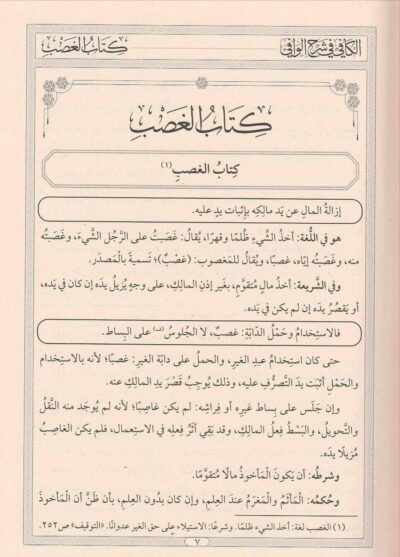 الكافي في شرح الوافي
كتاب الغصب
كِتَابُ الغَصْبِ
كِتابُ الغصبِ (١)
إزالةُ المالِ عن يَد مالكِه بإثبات يدٍ عليه.
هو في اللُّغة: أخذُ الشَّيءِ ظُلمًا وقهرًا، يُقالُ: غَصَبتُ على الرَّجُل الشَّيءَ، وغَصَبتُه
منه، وغَصَبتُه إيّاه، غصبًا، ويُقالُ للمَغصوب: (غصْبٌ)؛ تَسميةً بالْمَصدَر.
وفي الشَّريعة: أخذُ مالٍ مُتقوَّمٍ، بغير إذنِ المالِكِ، على وجهٍ يُزيلُ يدَه إن كان في يَده،
أو يَقصُرُ يدَه إن لم يكن في يَده.
فالاستِخدامُ وحَمْلُ الدّابّةِ: غصبٌ، لا الجُلوسُ(ف) على البِساط.
حتى كان استِخدامُ عبدِ الغير، والحملُ على دابّة الغير: غصبًا؛ لأنه بالاستِخدام
والحَمْلِ أثبَتَ يدَ التَّصرُّفِ عليه، وذلك يُوجِبُ قَصْرَ يَدِ المالِكِ عنه.
وإن جَلَس على بِساط غيره أو فِراشِه: لم يكن غاصِبًا؛ لأنه لم يُوجَد منه النَّقلُ
والتَّحويلُ، والبَسْطُ فِعلُ المالِكِ، وقد بَقِي أثَرُ فِعلِه في الاستِعمال، فلم يكن الغاصِبُ
مُزيلًا يدَه.
وشرطُه: أن يَكونَ الْمَأخوذُ مالًا مُتقوَّمًا.
وحُكمُه: الْمَأثَمُ والْمَغرَمُ عندَ العِلمِ، وإن كان بدُون العِلمِ، بأن ظَنَّ أن الْمَأخوذَ
(١) الغصب لغة: أخذ الشيء ظلمًا. وشرعًا: الاستيلاء على حق الغير عدوانًا. «التوقيف» ص٢٥٢.
٧